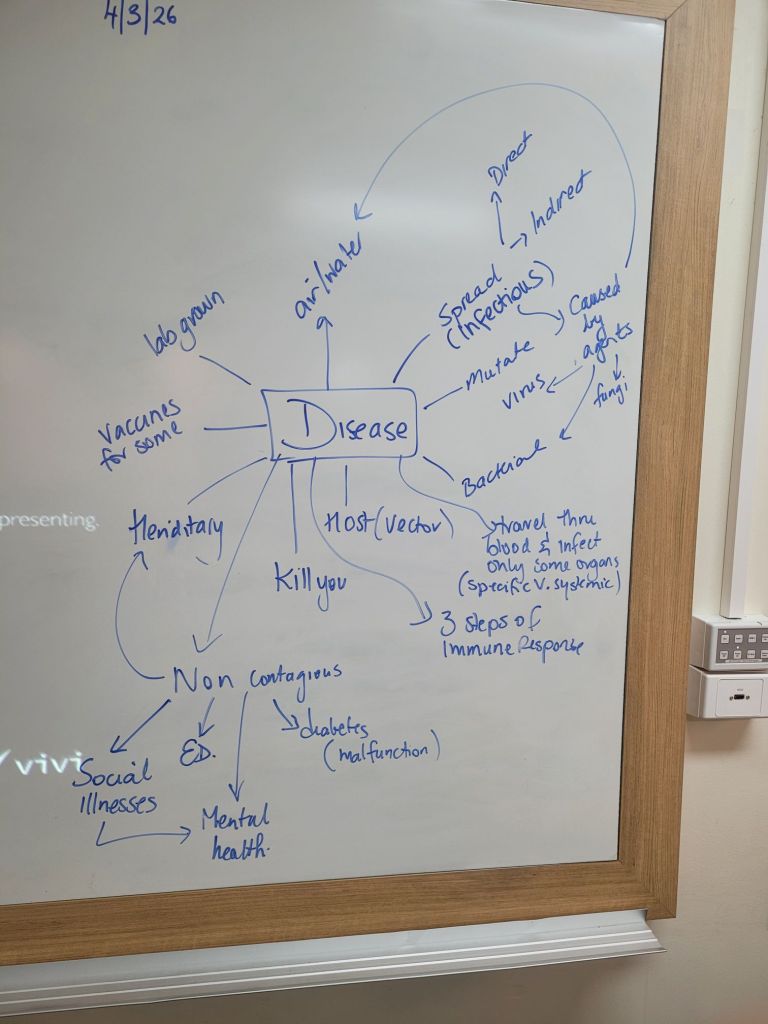 4/3/26
Direct
Indirect
air/water
Spread
(infectious)
Caused
by
agents
fungi
virus
Mutate
lab grown
Vaccines
for some
Disease
Bacterial
presenting.
Heriditary
Host (vector)
Kill you
travel thru
blood & infect
only some organs
(specific v. systemic)
3 steps of
Immune Response
Non contagious
diabetes
(malfunction)
ED.
vivi
Social
Illnesses
Mental
health.